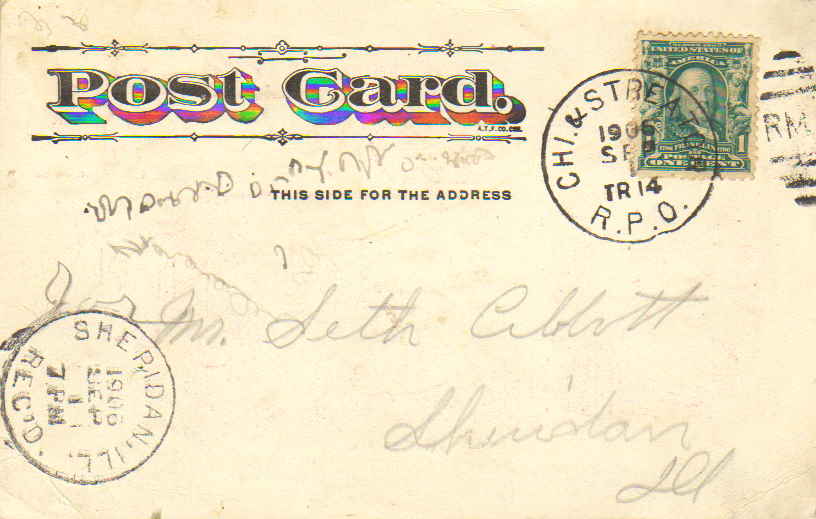 Post Card.
A.T.F. CO. CHI.
THIS SIDE FOR THE ADDRESS
UNITED STATES OF
AMERICA
FRANKLIN
POSTAGE
ONE CENT 1
CHI. & STREA
SEP
TR 14
R.P.O.
RM
Mr. Seth Abbott
Sheridan
Ill
SHERIDAN, ILL.
SEP
7 PM
REC'D.